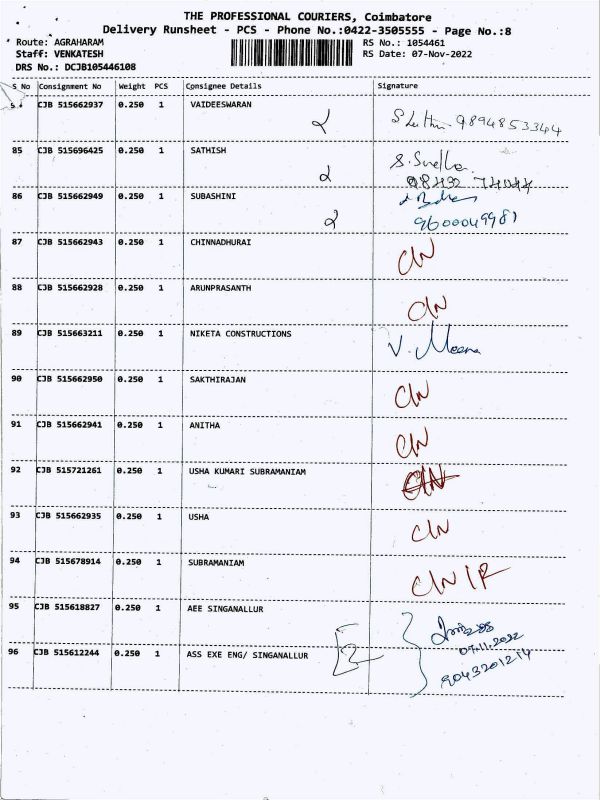 THE PROFESSIONAL COURIERS, Coimbatore
Delivery Runsheet - PCS - Phone No.:0422-3505555 - Page No.:8
Route: AGRAHARAM RS No.: 1054461
Staff: VENKATESH RS Date: 07-Nov-2022
DRS No.: DCJB105446108
S No Consignment No Weight PCS Consignee Details Signature
CJB 515662937 0.250 1 VAIDEESWARAN
9894853344
85 CJB 515696425 0.250 1 SATHISH
86 CJB 515662949 0.250 1 SUBASHINI
9600049981
87 CJB 515662943 0.250 1 CHINNADHURAI CIN
88 CJB 515662928 0.250 1 ARUNPRASANTH CIN
89 CJB 515663211 0.250 1 NIKETA CONSTRUCTIONS V. Meena
90 CJB 515662950 0.250 1 SAKTHIRAJAN CIN
91 CJB 515662941 0.250 1 ANITHA CIN
92 CJB 515721261 0.250 1 USHA KUMARI SUBRAMANIAM CIN
93 CJB 515662935 0.250 1 USHA CIN
94 CJB 515678914 0.250 1 SUBRAMANIAM CIN IR
95 CJB 515618827 0.250 1 AEE SINGANALLUR
07.11.2022
96 CJB 515612244 0.250 1 ASS EXE ENG/ SINGANALLUR 2
9043201214